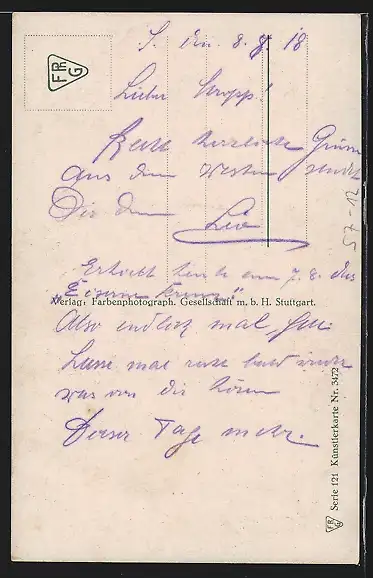 FRG
S. den 8.8.18
Lieber Knopp!
Recht herzliche Grüsse
aus dem Westen sendet
Dir dein
Leo
57-12
Erhielt heute am 7.8. das
"Eiserne Kreuz".
Verlag: Farbenphotograph. Gesellschaft m. b. H. Stuttgart.
Also endlich mal,
Lasse mal recht bald wieder
was von dir hören
Dieser Tage mehr.
FRG Serie 121 Künstlerkarte Nr. 3472